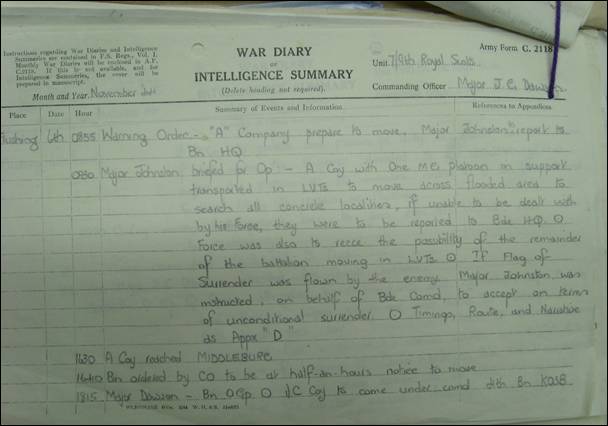 Instructions regarding War Diaries and Intelligence
Summaries are contained in F.S. Regs., Vol. I.
Monthly War Diaries will be enclosed in A.F.
C.2118. If this is not available, and for
Intelligence Summaries, the cover will be
prepared in manuscript.
Month and Year November
WAR DIARY
or
INTELLIGENCE SUMMARY
(Delete heading not required).
Army Form C. 2118
Unit 7/9th Royal Scots
Commanding Officer Major J.C. Dawson
Place Date Hour Summary of Events and Information References to Appendices
Flushing 6th 0855 Warning Order - "A" Company prepare to move, Major Johnston report to
Bn HQ
Major Johnston briefed for Op - A Coy with One MG platoon in support
transported in LVTs to move across flooded area to
search all concrete localities, if unable to be dealt with
by his Force, they were to be reported to Bde HQ. O
Force was also to recce the possibility of the remainder
of the battalion moving in LVTs O If Flag of
Surrender was flown by the enemy Major Johnston was
instructed, on behalf of Bde Comd, to accept on terms
of unconditional surrender. O Timings, Route, and Narrative
as Appx "D"
1630 A Coy reached MIDDLEBURG
1640 Bn ordered by CO to be at half-an-hours notice to move
1815 Major Dawson - Bn O Gp. O C Coy to come under comd Bn KOSB